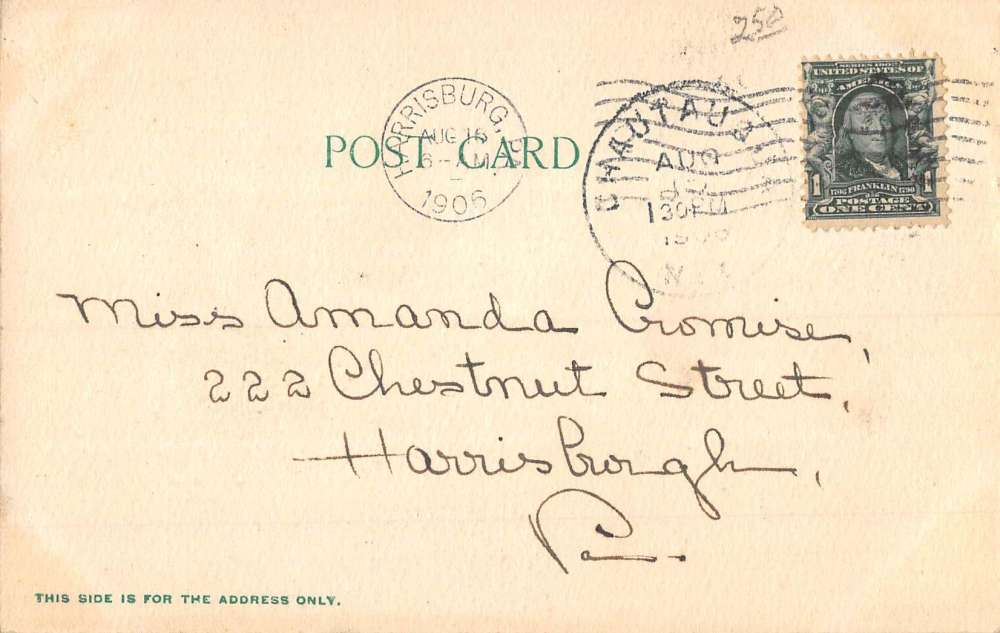 250
SERIES 1902
UNITED STATES OF
AMERICA
1706 FRANKLIN 1790
1 POSTAGE 1
ONE CENT
HARRISBURG,
AUG 16
6-
M
1906
CHAUTAU
AUG
130PM
POST CARD
Miss Amanda Cromise,
222 Chestnut Street,
Harrisburgh,
Pa.
THIS SIDE IS FOR THE ADDRESS ONLY.